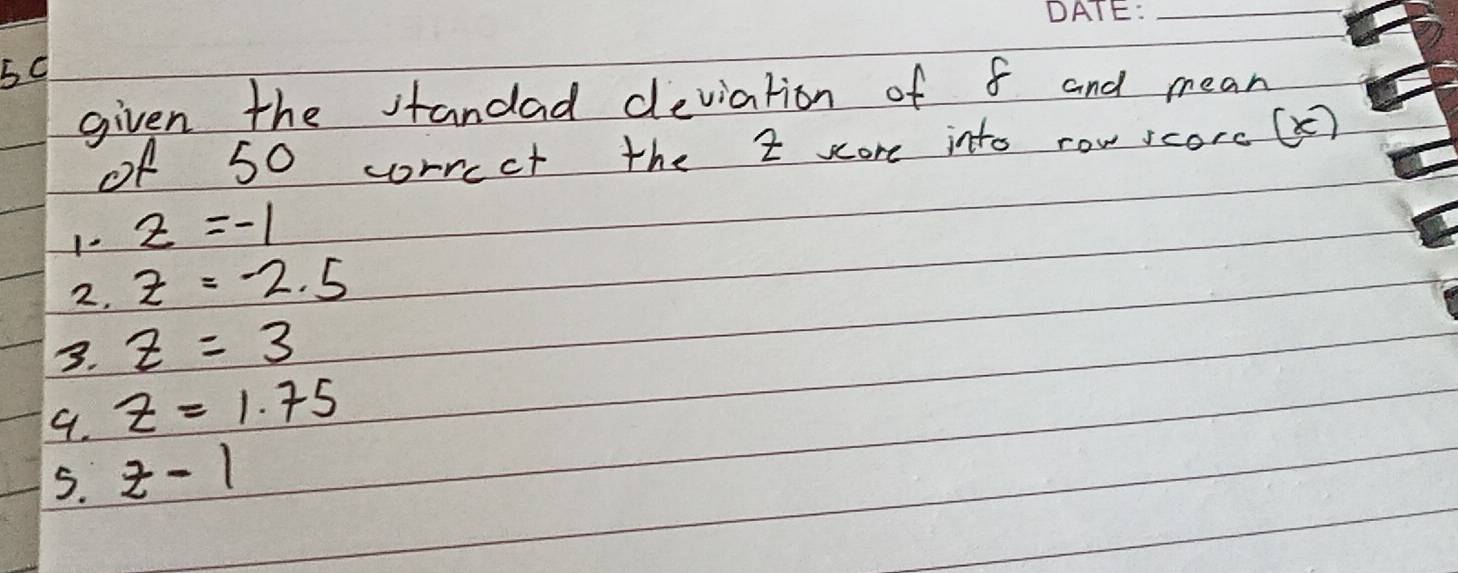 DATE:
5C
given the standad deviation of 8 and mean
of 50 correct the z score into row score (x)
1. z = -1
2. z = -2.5
3. z = 3
4. z = 1.75
5. z - 1